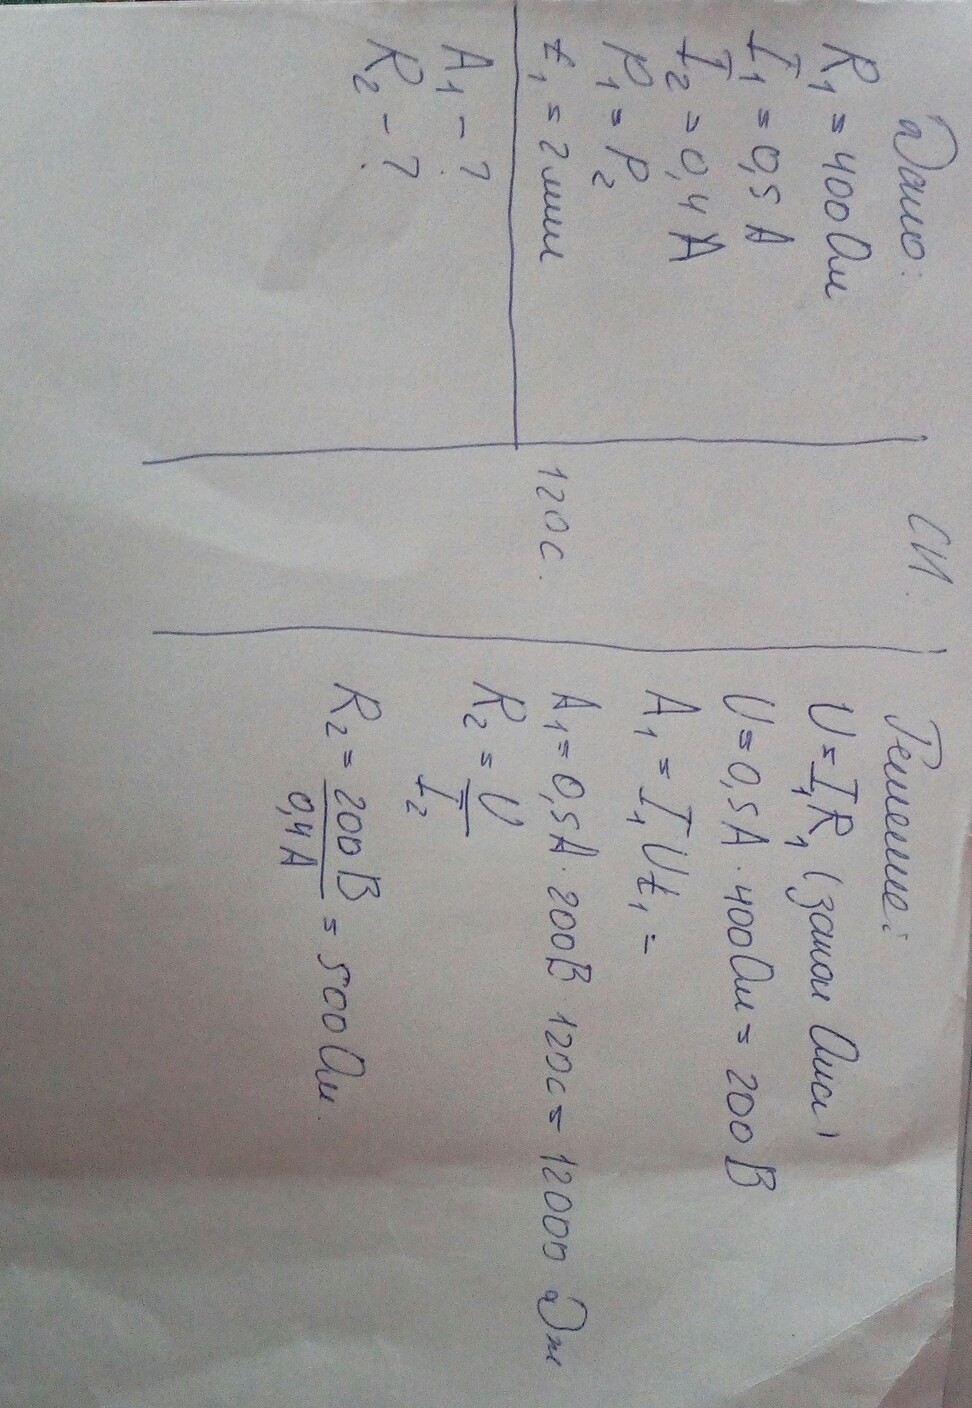 Дано:
R₁ = 400 Ом
I₁ = 0,5 А
I₂ = 0,4 А
P₁ = P₂
t₁ = 2 мин
А₁ - ?
R₂ - ?
СИ.
120 с.
Решение:
U = I₁R₁ (закон Ома)
U = 0,5А · 400 Ом = 200 В
А₁ = I₁Ut₁ =
А₁ = 0,5А · 200В · 120с = 12000 Дж
R₂ = U/I₂
R₂ = 200 В/0,4 А = 500 Ом.